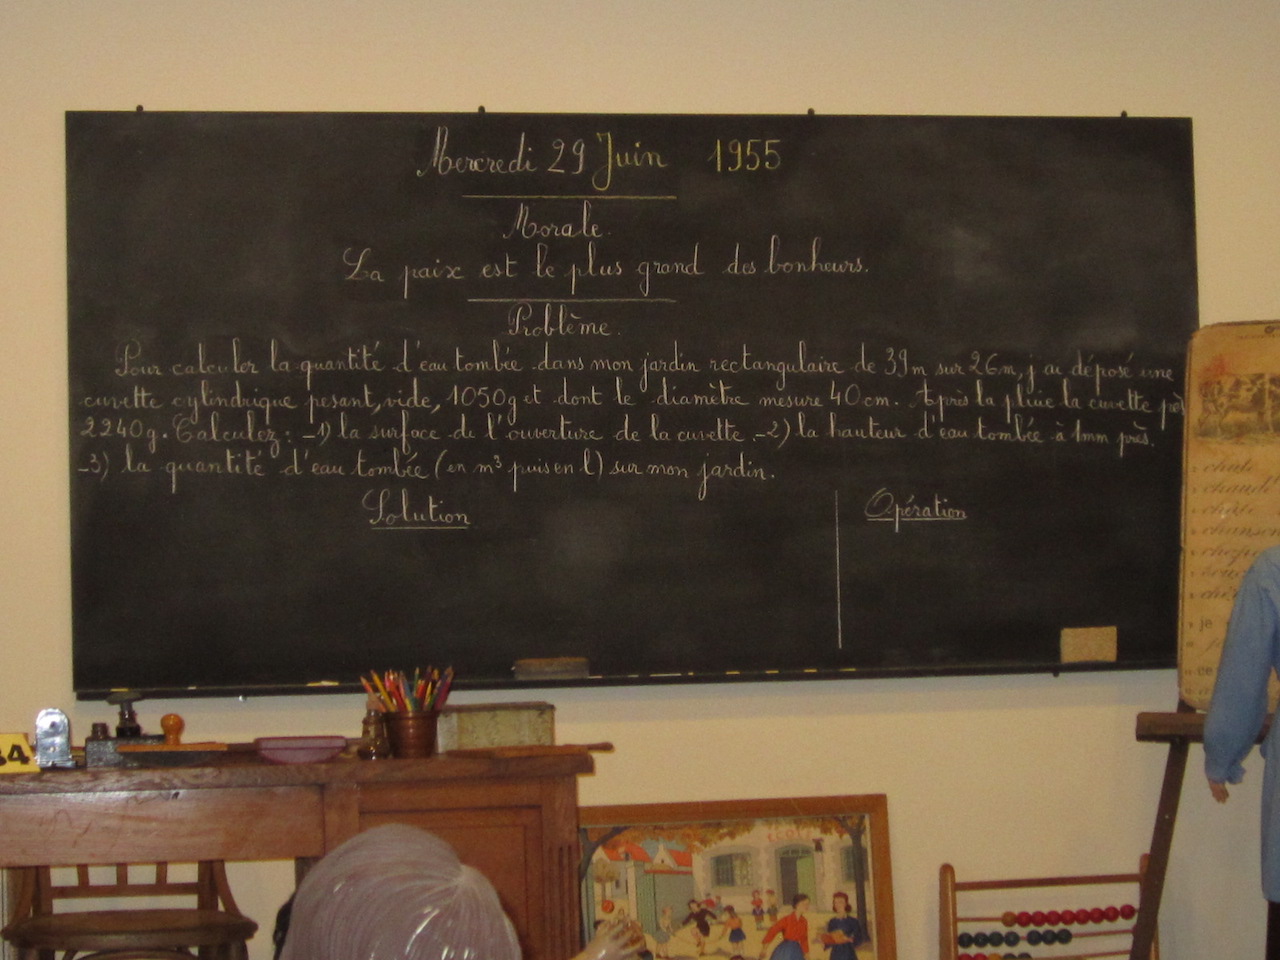 Mercredi 29 Juin 1955
Morale.
La paix est le plus grand des bonheurs.
Problème.
Pour calculer la quantité d'eau tombée dans mon jardin rectangulaire de 39m sur 26m, j'ai déposé une
cuvette cylindrique pesant, vide, 1050g et dont le diamètre mesure 40cm. Après la pluie la cuvette
2240g. Calculez : -1) la surface de l'ouverture de la cuvette. -2) la hauteur d'eau tombée à 1mm près.
-3) la quantité d'eau tombée (en m³ puis en l) sur mon jardin.
Solution
Opération
chute
chaude
chanson
je
ce